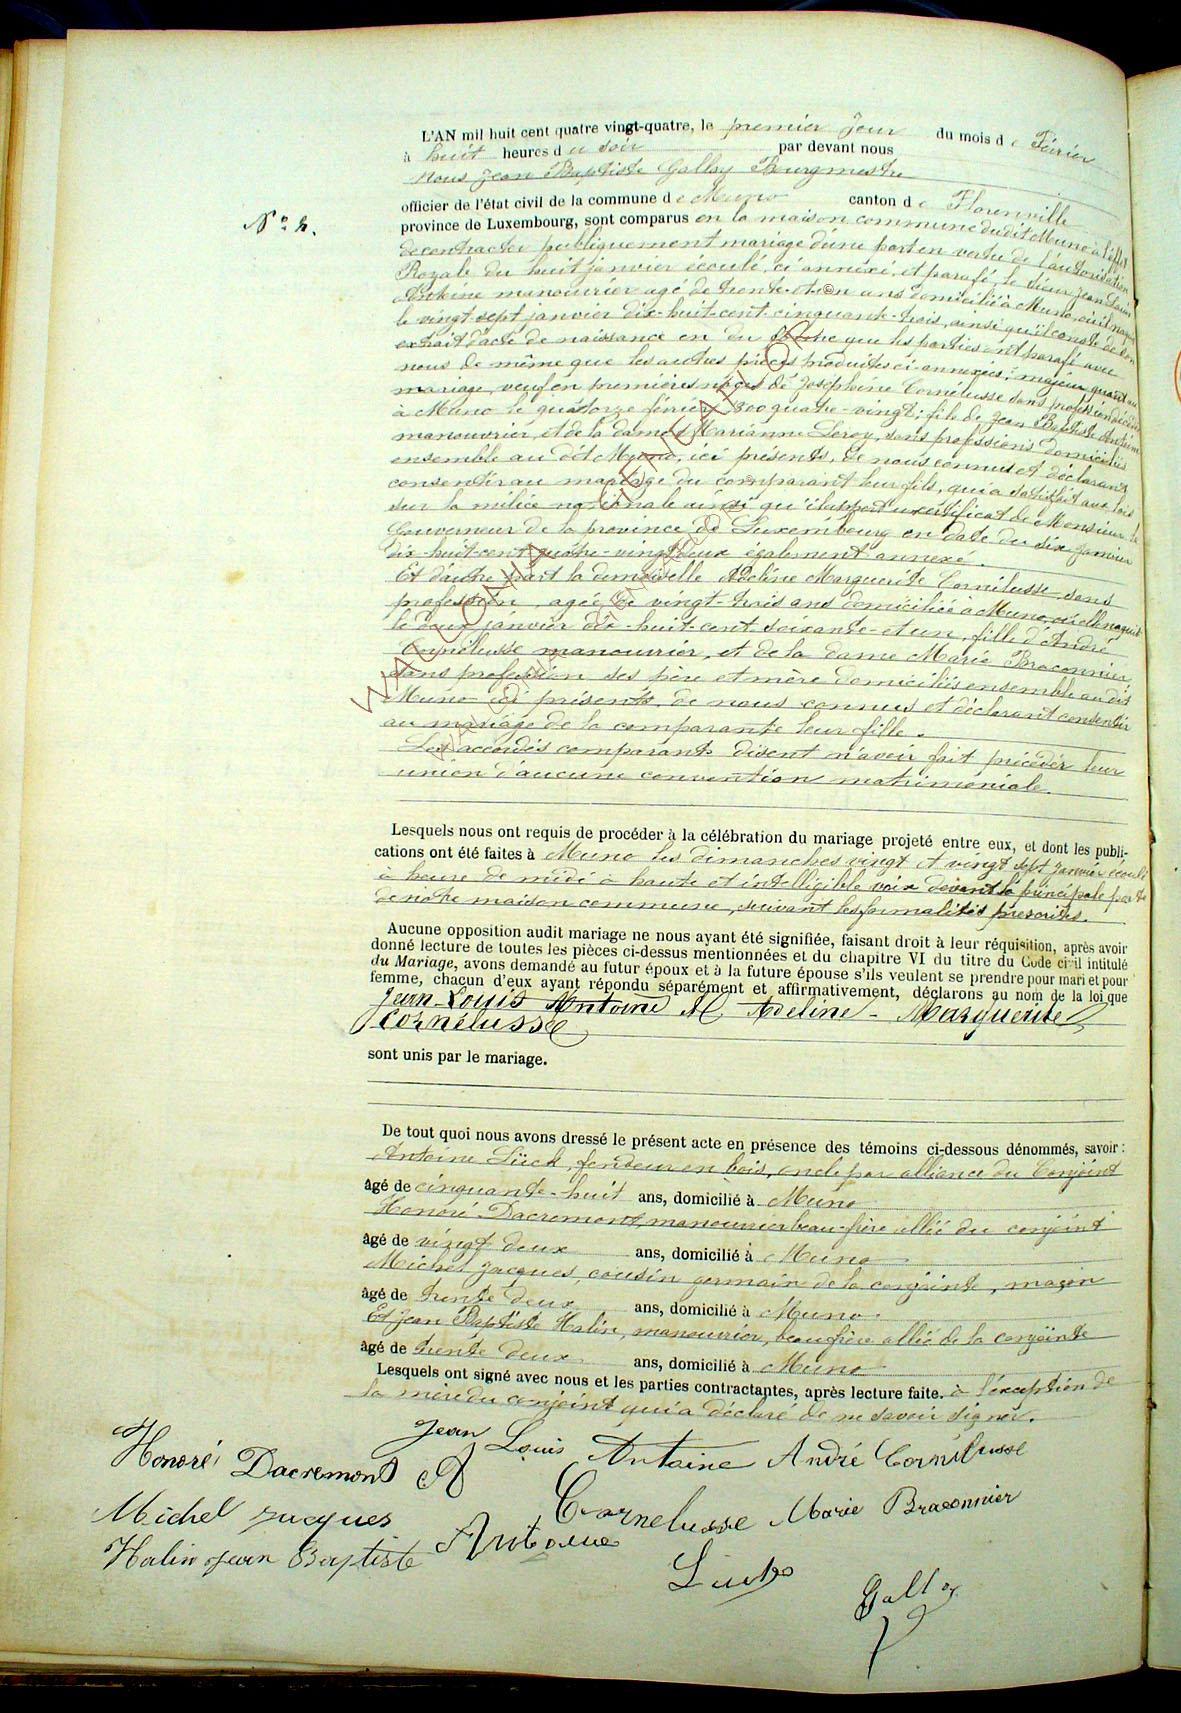 L'AN mil huit cent quatre vingt-quatre, le premier jour du mois de Février
à huit heures du soir par devant nous
Nous Jean Baptiste Galloy Bourgmestre
officier de l'état civil de la commune de Muno canton de Florenville
N° 2.
province de Luxembourg, sont comparus en la maison commune dudit Muno à l'effet
de contracter publiquement mariage d'une part en vertu de l'autorisation
Royale du huit janvier écoulé, ci annexé, et parafé, le sieur Jean Louis
Antoine manouvrier agé de trente-et-un ans domicilié à Muno, où il naquit
le vingt-sept janvier dix-huit-cent-cinquante-trois, ainsi qu'il conste de son
extrait d'acte de naissance en du que les parties ont parafé avec
nous de même que les autres pièces produites ci-annexées; majeur quant au
mariage, veuf en premières noces de Joséphine Cornélusse sans profession décédée
à Muno le quatorze février 1800 quatre-vingt; fils de Jean Baptiste Antoine
manouvrier, et de la dame Marianne Leroy, sans professions domiciliés
ensemble au dit Muno, ici présents, de nous connus et déclarant
consentir au mariage du comparant leur fils, qui a satisfait aux lois
sur la milice nationale ainsi qu'il appert du certificat de Monsieur le
Gouverneur de la province de Luxembourg en date du dix janvier
dix-huit-cent-quatre-vingt deux également annexé.
Et d'autre part la demoiselle Adeline Marguerite Cornélusse sans
profession, agée de vingt-trois ans domiciliée à Muno, où elle naquit
le deux janvier dix-huit-cent-soixante-et-un, fille d'André
Cornélusse manouvrier, et de la dame Marie Braconnier
sans profession ses père et mère domiciliés ensemble au dit
Muno ici présents, de nous connus et déclarant consentir
au mariage de la comparante leur fille.
Les accordés comparants disent n'avoir fait précéder leur
union d'aucune convention matrimoniale.
Lesquels nous ont requis de procéder à la célébration du mariage projeté entre eux, et dont les publi-
cations ont été faites à Muno les dimanches vingt et vingt sept janvier écoulé
à heure de midi à haute et intelligible voix devant la principale porte
de notre maison commune, suivant les formalités prescrites.
Aucune opposition audit mariage ne nous ayant été signifiée, faisant droit à leur réquisition, après avoir
donné lecture de toutes les pièces ci-dessus mentionnées et du chapitre VI du titre du Code civil intitulé
du Mariage, avons demandé au futur époux et à la future épouse s'ils veulent se prendre pour mari et pour
femme, chacun d'eux ayant répondu séparément et affirmativement, déclarons au nom de la loi que
Jean Louis Antoine Et Adeline - Marguerite
Cornélusse
sont unis par le mariage.
De tout quoi nous avons dressé le présent acte en présence des témoins ci-dessous dénommés, savoir :
Antoine Lück, fendeur en bois, oncle par alliance du Conjoint
âgé de cinquante-huit ans, domicilié à Muno
Honoré Dacremont, manouvrier beau-frère allié du conjoint
âgé de vingt deux ans, domicilié à Muno
Michel Jacques, cousin germain de la conjointe, maçon
âgé de trente deux ans, domicilié à Muno
Et Jean Baptiste Halin, manouvrier, beaufrère allié de la conjointe
âgé de trente deux ans, domicilié à Muno
Lesquels ont signé avec nous et les parties contractantes, après lecture faite. à l'exception de
la mère du conjoint qui a déclaré de ne savoir signer.
Jean Louis Antoine André Cornélusse
Honoré Dacremont A Cornelusse Marie Braconnier
Michel Jacques Antoine
Halin Jean Baptiste Galloy